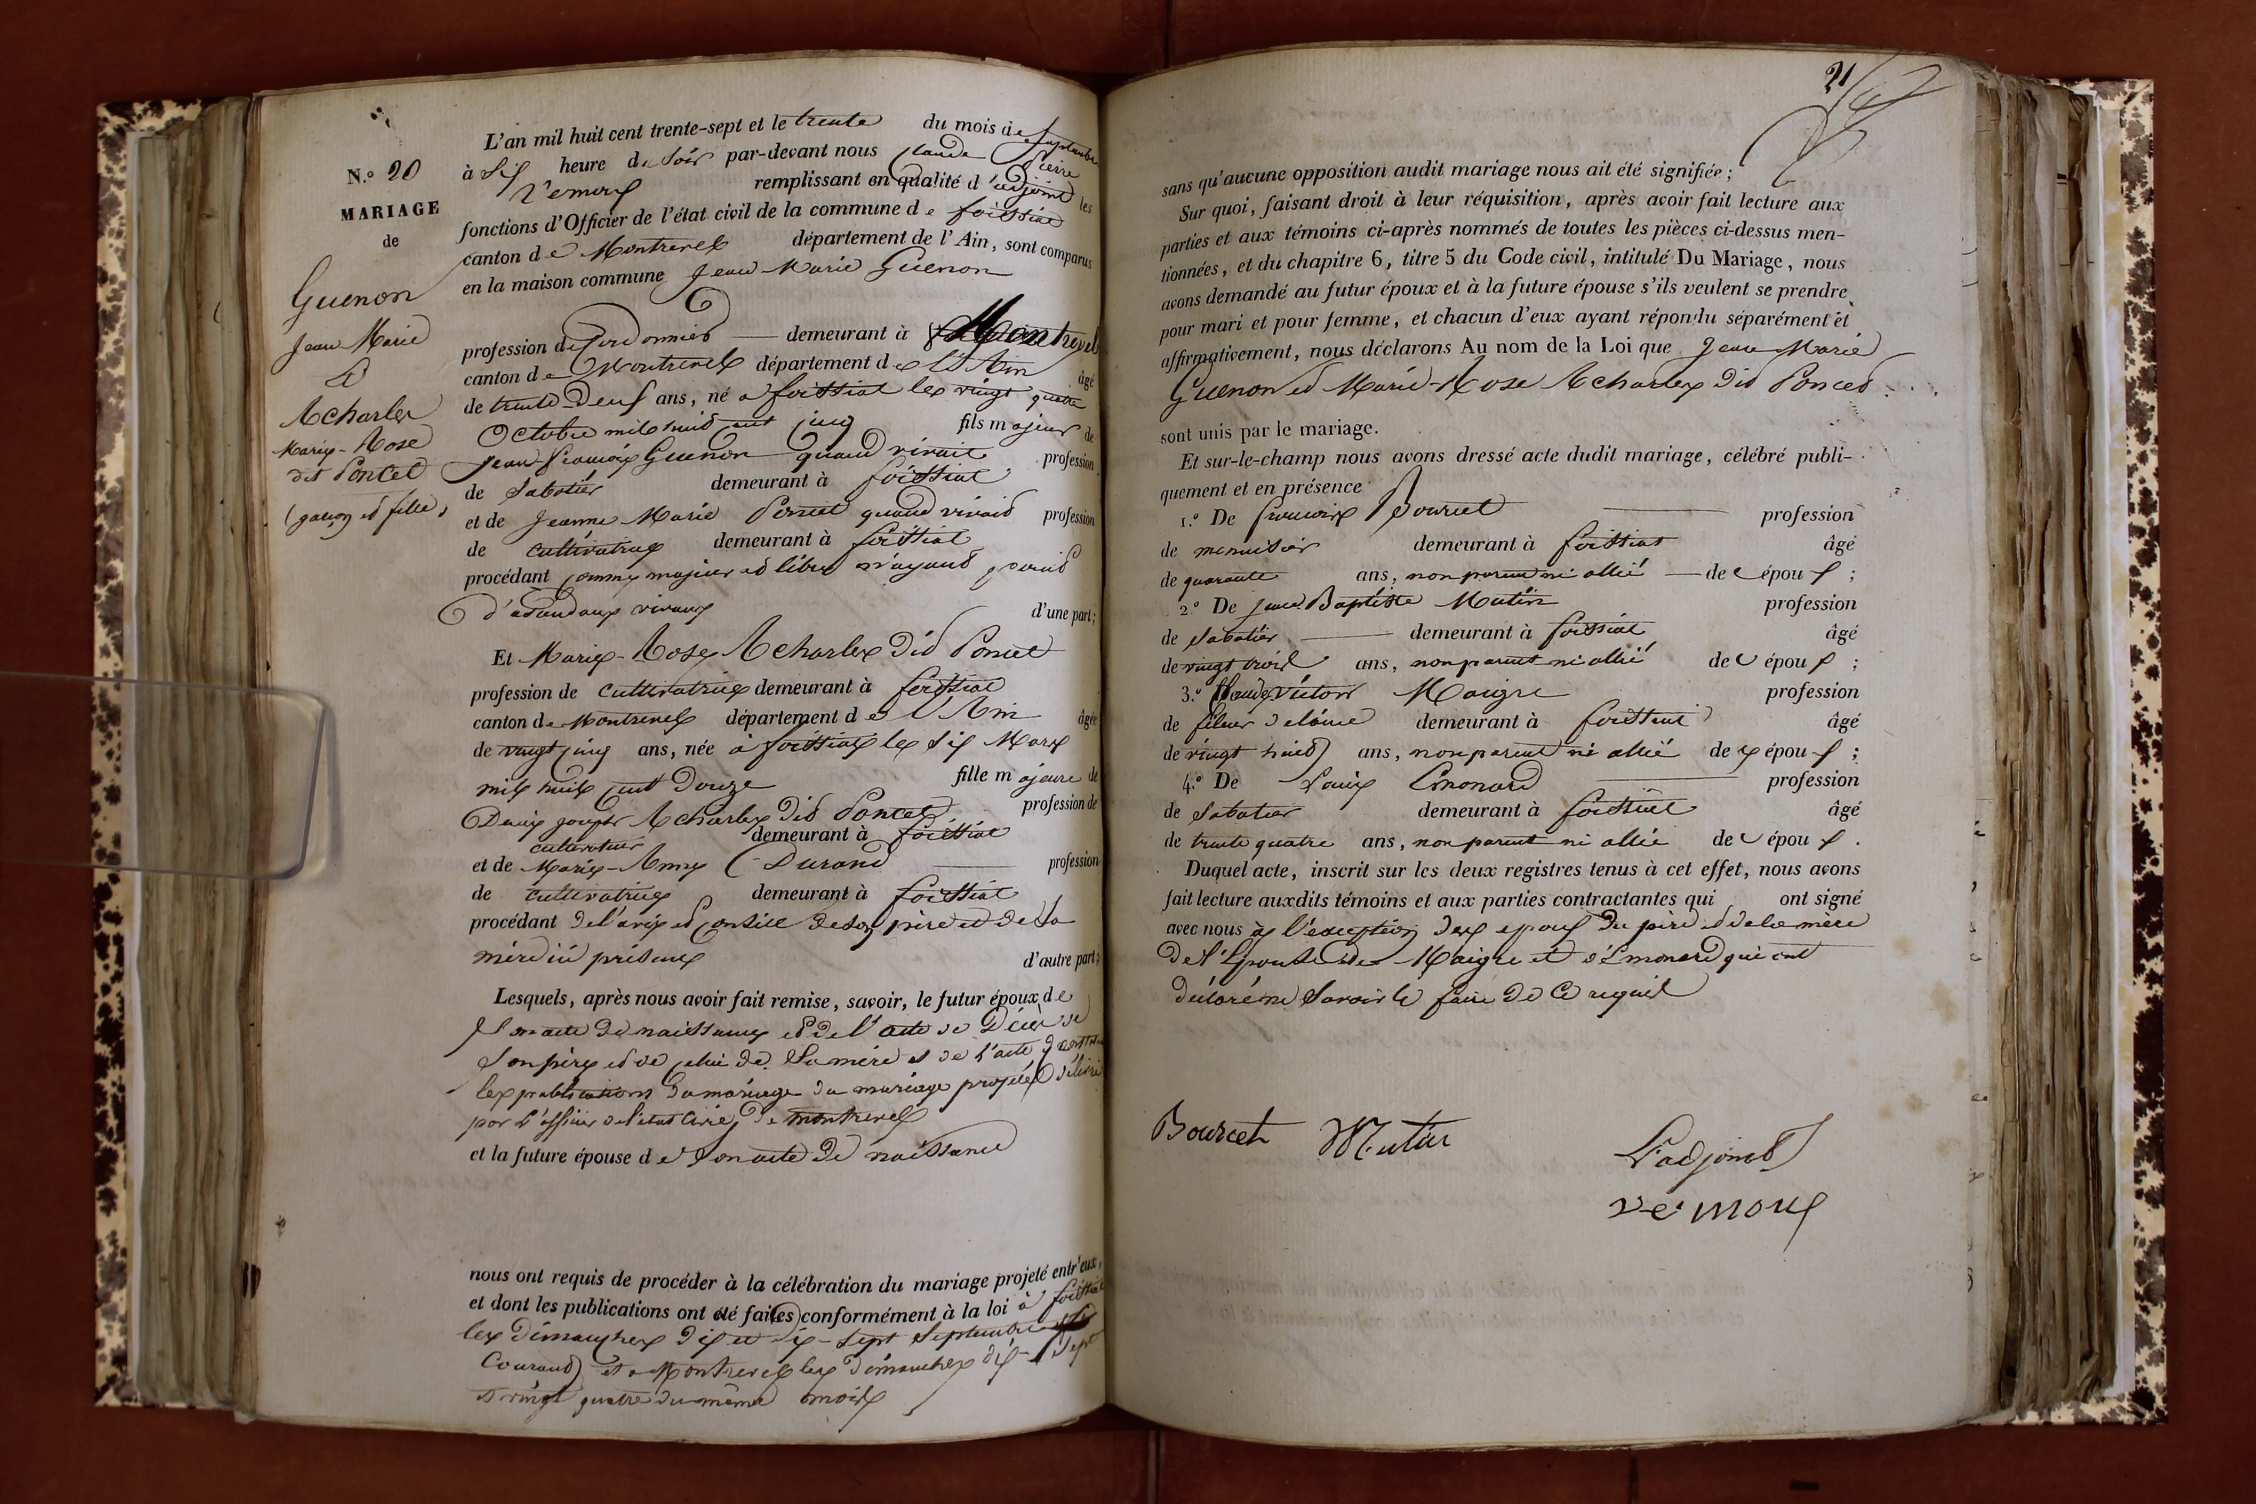 N.° 20
MARIAGE
de
Guenon
Jean Marie
&
Acharlex
Marie-Rose
dit Poncet
(garçon et fille)
L'an mil huit cent trente-sept et le trente du mois de Septembre
à Six heure du Soir par-devant nous Claude Pierre
Vémoux remplissant en qualité d'adjoint les
fonctions d'Officier de l'état civil de la commune de foissiat
canton de Montrevel département de l'Ain, sont comparus
en la maison commune Jean Marie Guenon
profession de Cordonnier demeurant à Montrevel
canton de Montrevel département de l'Ain âgé
de trente-deux ans, né a foissiat les vingt quatre
Octobre mil huit cent cinq fils majeur de
Jean françois Guenon quand vivait profession
de Sabotier demeurant à foissiat
et de Jeanne Marie Poncet quand vivait profession
de cultivatrice demeurant à foissiat
procédant comme majeur et libre n'ayant
d'ascendans vivans d'une part;
Et Marie-Rose Acharlex dit Poncet
profession de cultivatrice demeurant à foissiat
canton de Montrevel département de l'Ain âgée
de vingt cinq ans, née à foissiat le Six Mars
mil huit cent douze fille majeure de
Denis joseph Acharlex dit Poncet profession de
cultivateur demeurant à foissiat
et de Marie-Anne Durand profession
de cultivatrice demeurant à foissiat
procédant de l'avis et Conseil de son père et de Sa
mère ici présens d'autre part;
Lesquels, après nous avoir fait remise, savoir, le futur époux de
Son acte de naissance et de l'acte de Décès de
Son père et de celui de Sa mère et de l'acte
les publications du mariage du mariage projeté délivré
par l'officier de l'état Civil de montrevel
et la future épouse de Son acte de naissance
nous ont requis de procéder à la célébration du mariage projeté entr'eux,
et dont les publications ont été faites conformément à la loi à foissiat
les dimanches dix et dix-Sept Septembre
Courand et a Montrevel les dimanches dix-Sept
et vingt quatre du même mois
21
sans qu'aucune opposition audit mariage nous ait été signifiée;
Sur quoi, faisant droit à leur réquisition, après avoir fait lecture aux
parties et aux témoins ci-après nommés de toutes les pièces ci-dessus men-
tionnées, et du chapitre 6, titre 5 du Code civil, intitulé Du Mariage, nous
avons demandé au futur époux et à la future épouse s'ils veulent se prendre
pour mari et pour femme, et chacun d'eux ayant répondu séparément et
affirmativement, nous déclarons Au nom de la Loi que Jean Marie
Guenon et Marie-Rose Acharlex dit Poncet
sont unis par le mariage.
Et sur-le-champ nous avons dressé acte dudit mariage, célébré publi-
quement et en présence
1.° De françois Bourcet profession
de menuisier demeurant à foissiat âgé
de quarante ans, non parent ni allié de l'époux;
2.° De Jean Baptiste Mutin profession
de Sabotier demeurant à foissiat âgé
de vingt trois ans, non parent ni allié de l'époux;
3.° Claude Victor Maigre profession
de fileur de laine demeurant à foissiat âgé
de vingt huit ans, non parent ni allié de l'époux;
4.° De Louis Emonard profession
de Sabotier demeurant à foissiat âgé
de trente quatre ans, non parent ni allié de l'époux.
Duquel acte, inscrit sur les deux registres tenus à cet effet, nous avons
fait lecture auxdits témoins et aux parties contractantes qui ont signé
avec nous à l'exception des epoux du père et de la mère
de l'Epouse de Maigre et d'Emonard qui ont
déclaré ne Savoir le faire de ce requis
Bourcet Mutin
L'adjoint
Vémoux